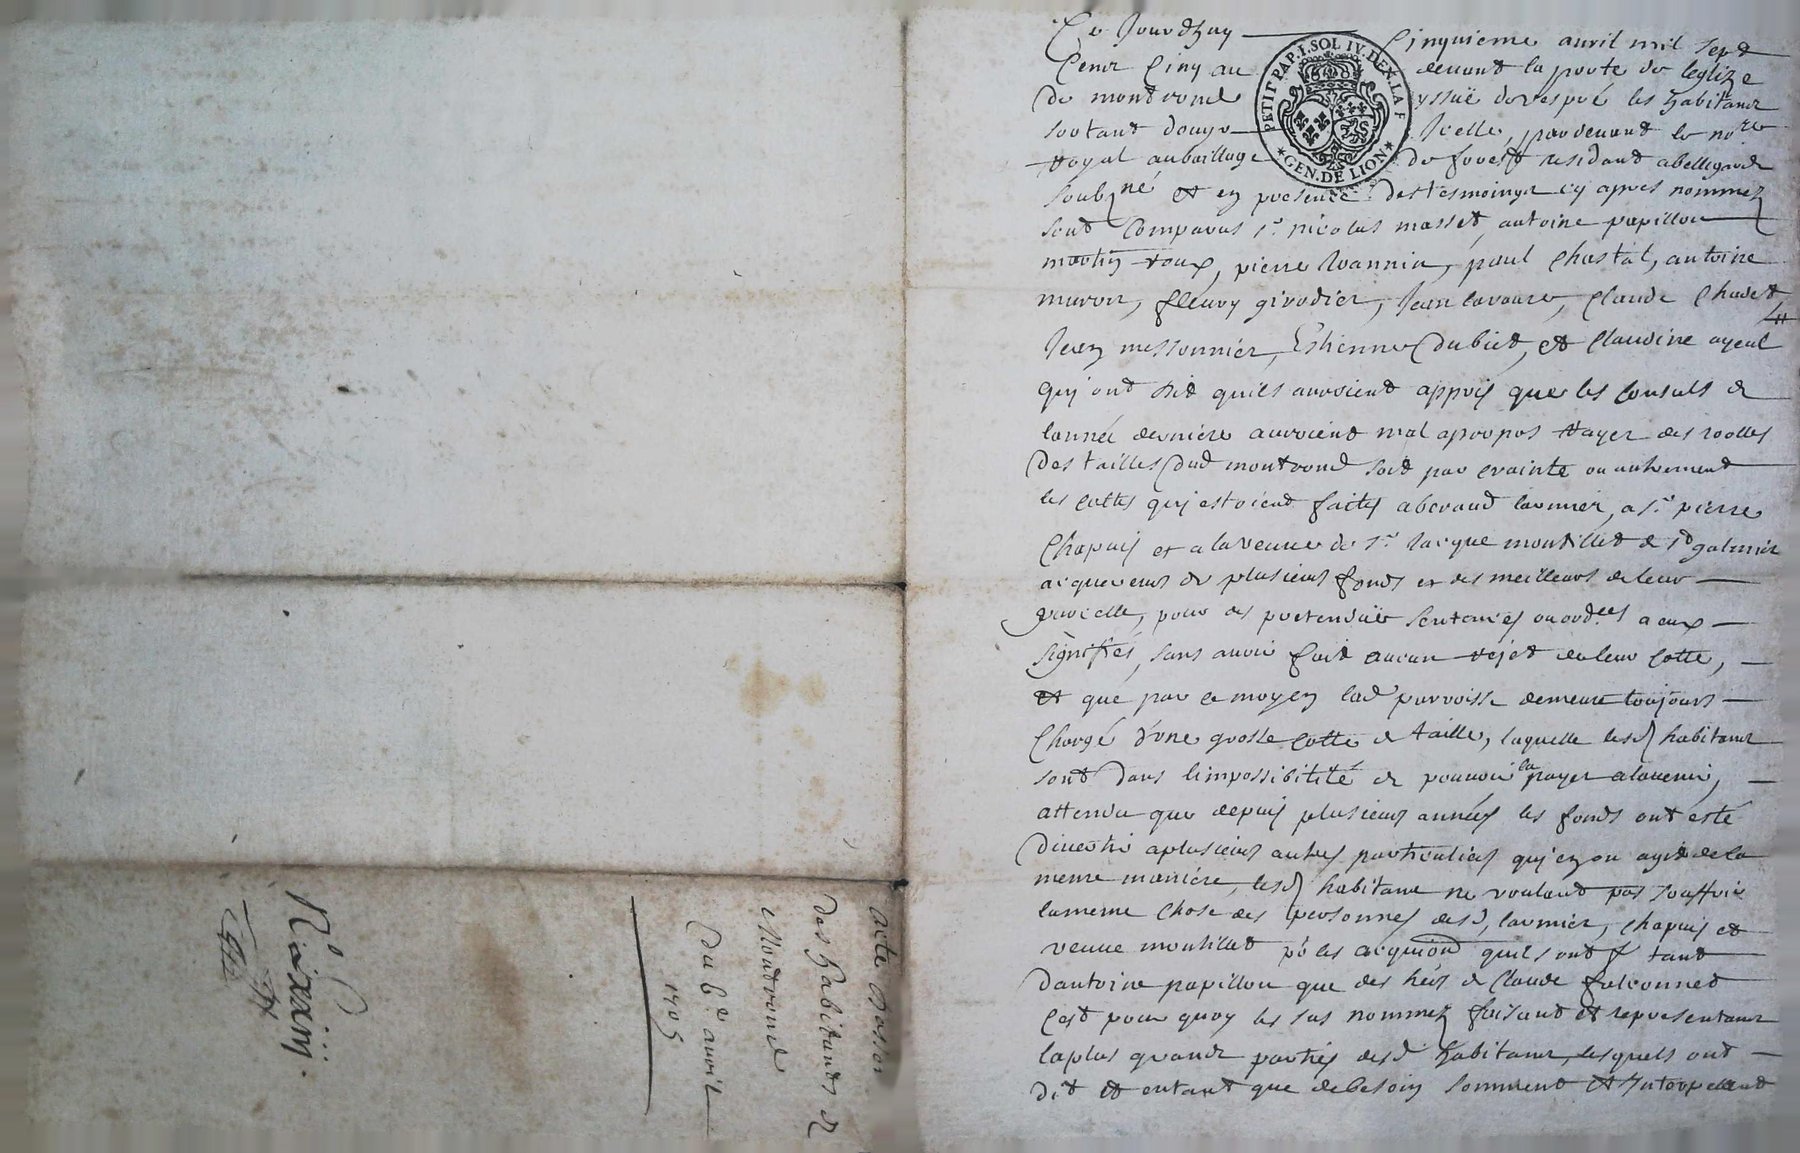 Ce Jourdhuy Cinquieme auril mil sept
Cens Cinq au deuant la porte de leglize
de montrond yssüe de vespré les habitans
sortant douyr Jcelle, pardeuant le nore
Royal au bailliage de forest residant a bellegarde
soubzné et en presence des tesmoings cy apres nommez
sont Comparus sr nicolas masset, antoine papillon
martin roux, pierre Joannin, paul Chastal, antoine
muron, fleury girodier, Jean lavaure, Claude Chadet,
Jean messonnier, Estienne dubiet, et Claudine ayeul
quj ont dit quils auroient appris que les Consuls de
lannée derniere auroient mal apropos rayer des roolles
des tailles dud montrond soit par crainte ou autrement
les cottes quj estoient faites a beraud larmier, a sr pierre
Chapuis et a la veuue de sr Jacque montillet de st galmier
acquereurs de plusieurs fonds et des meilleurs de leur
parcelle, pour des pretendües sentences ou ordces a eux
signiffiés, sans auoir fait aucun réjet de leur cotte,
et que par ce moyen lad parroisse demeure toujours
Chargé d'une grosse cotte de taille, laquelle lesd habitans
sont dans limpossibilité de pouuoir la payer alauenir,
attendu que depuis plusieurs années les fonds ont esté
diuerti a plusieurs autres particuliers quj en on agit de la
meme maniére, lesd habitans ne voulant pas souffrir
la meme chose des personnes desd larmier, Chapuis et
veuue montillet pr les acquiõns quils ont ft tant
dantoine papillon que des hers de Claude falconnet
Cest pour quoy les sus nommez faisant et representant
la plus grande parties desd habitans, lesquels ont
dit et entant que de besoin somment et Interpellent
PETIT PAP. I. SOL IV. D. EX. LA F
GEN. DE LION
acte
des habitants de
Montrond
du 5e auril
1705